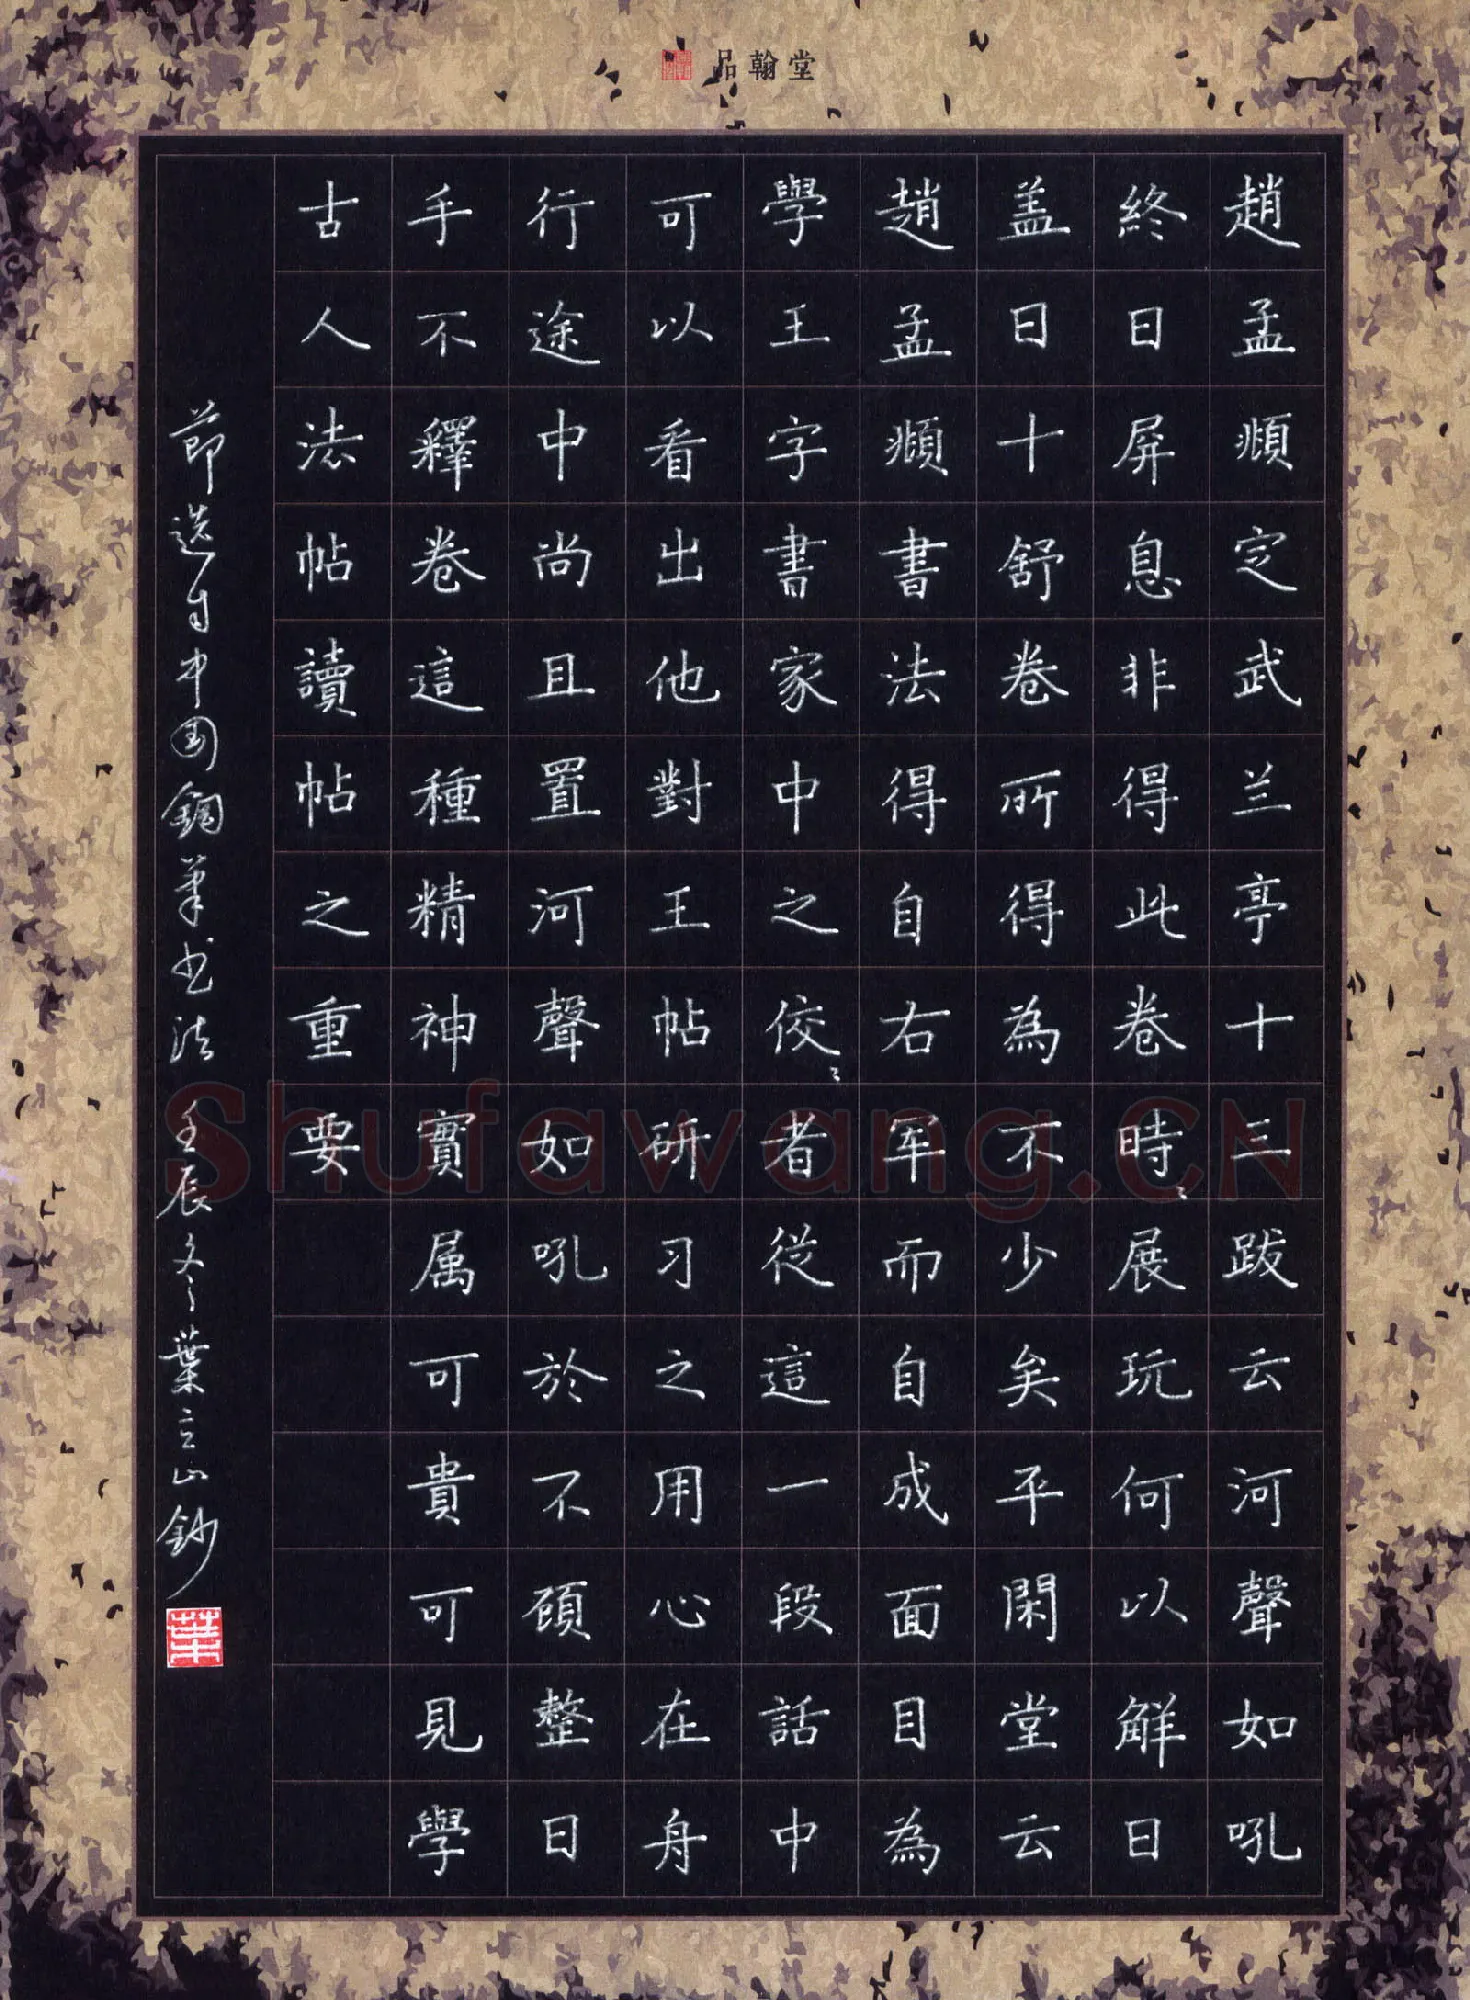 品翰堂
趙孟頫定武兰亭十三跋云河聲如吼
終日屏息非得此卷時〻展玩何以解日
盖日十舒卷所得為不少矣平閑堂云
趙孟頫書法得自右军而自成面目為
學王字書家中之佼〻者從這一段話中
可以看出他對王帖研习之用心在舟
行途中尚且置河聲如吼於不顧整日
手不釋卷這種精神實属可貴可見學
古人法帖讀帖之重要
節选自中国钢筆书法 壬辰冬葉立山鈔
葉
Shufawang.CN